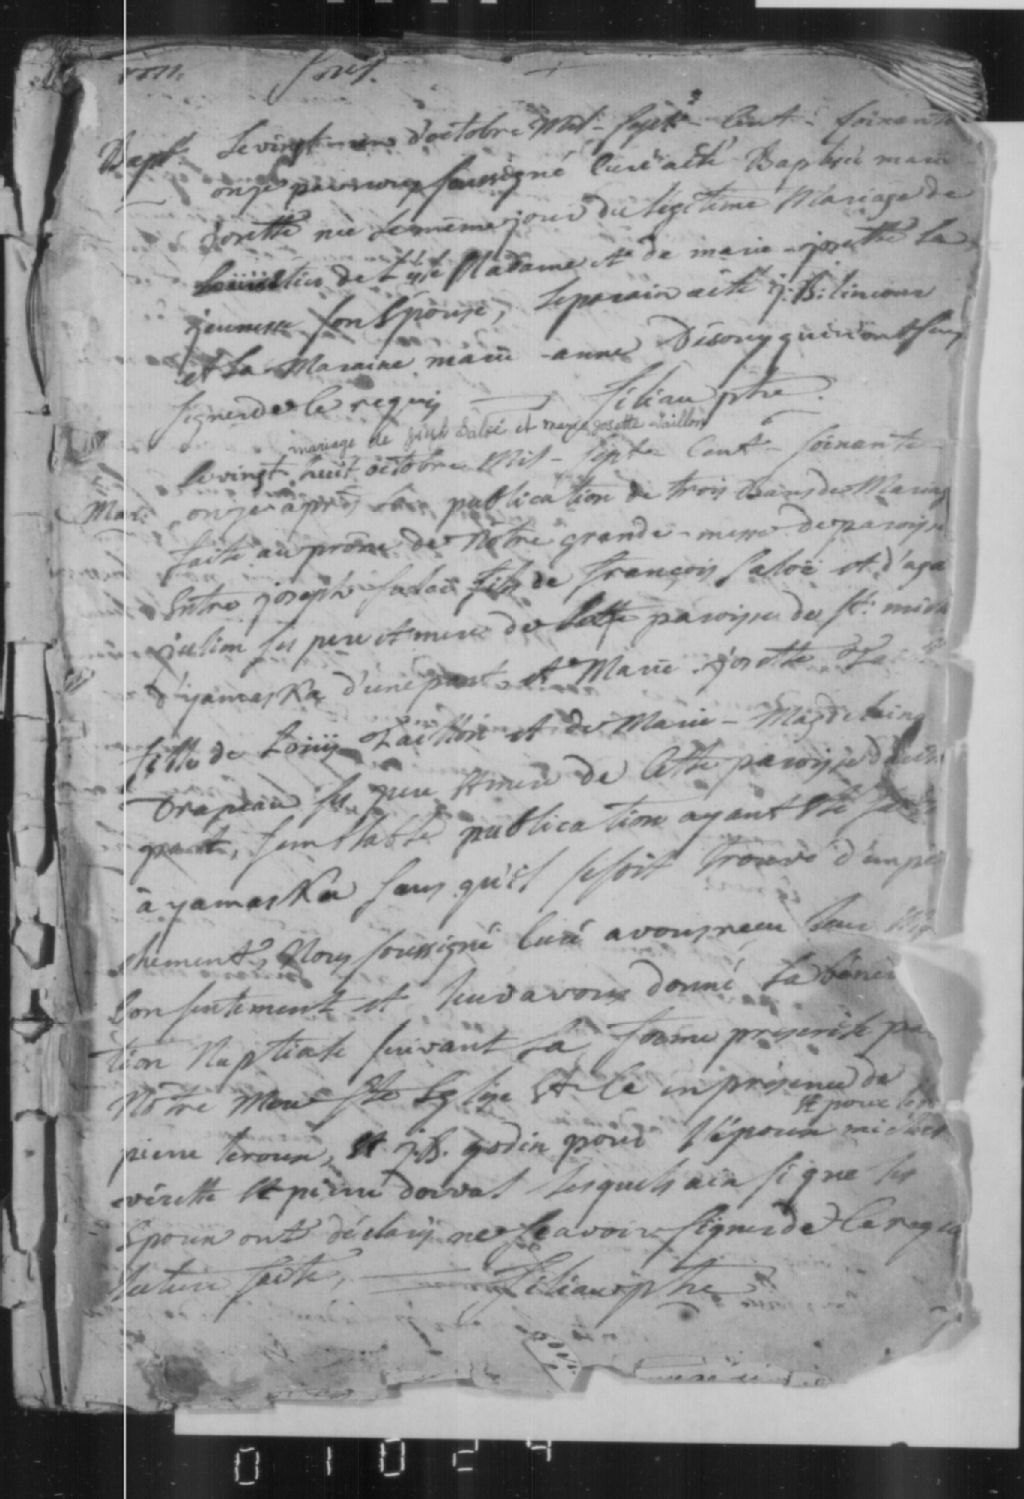 1771. Sorel.
Bapt. Le vingt d'octobre Mil - Sept - Cent - soixante
onze par nous soussigné Curé a été Baptisée marie
Josette née le même jour du légitime Mariage de
Madame et de marie - josette La
jeunesse son Epouse, le parain a été j: B: lincour
et la Maraine marie - anne Désorcy qui n'ont sceu
signer de ce requis Filiau ptre.
mariage de Saloé et marie josette Taillon
Le vingt huit octobre Mil - Sept - Cent - soixante -
Mar: onze après la publication de trois bans de Mariag
faite au prône de Nôtre grande - messe de paroisse
Entre joseph Saloé fils de françois Saloé et d'aga
julien ses pere et mere de la paroisse de St: mich
d'yamaska d'une part, et Marie - josette Ta
fille de Louis Taillon et de Marie - Magdelaine
Drapeau ses pere et mere de Cette paroisse d'autr
part, semblable publication ayant été fai
a yamaska sans qu'il se soit trouvé d'empe
chement, Nous soussigné Curé avons recu leur
Consentement et leur avons donné la béné
tion Nuptiale suivant la forme prescrite pa
Nôtre Mere Ste Eglise Et ce en presence de
et pour
pierre teroux, et j: B. godin pour l'époux michel
verette et pierre dorval lesquels ainsi que les
Epoux ont déclaré ne scavoir signer de ce requis
lecture faite, Filiau ptre
01024